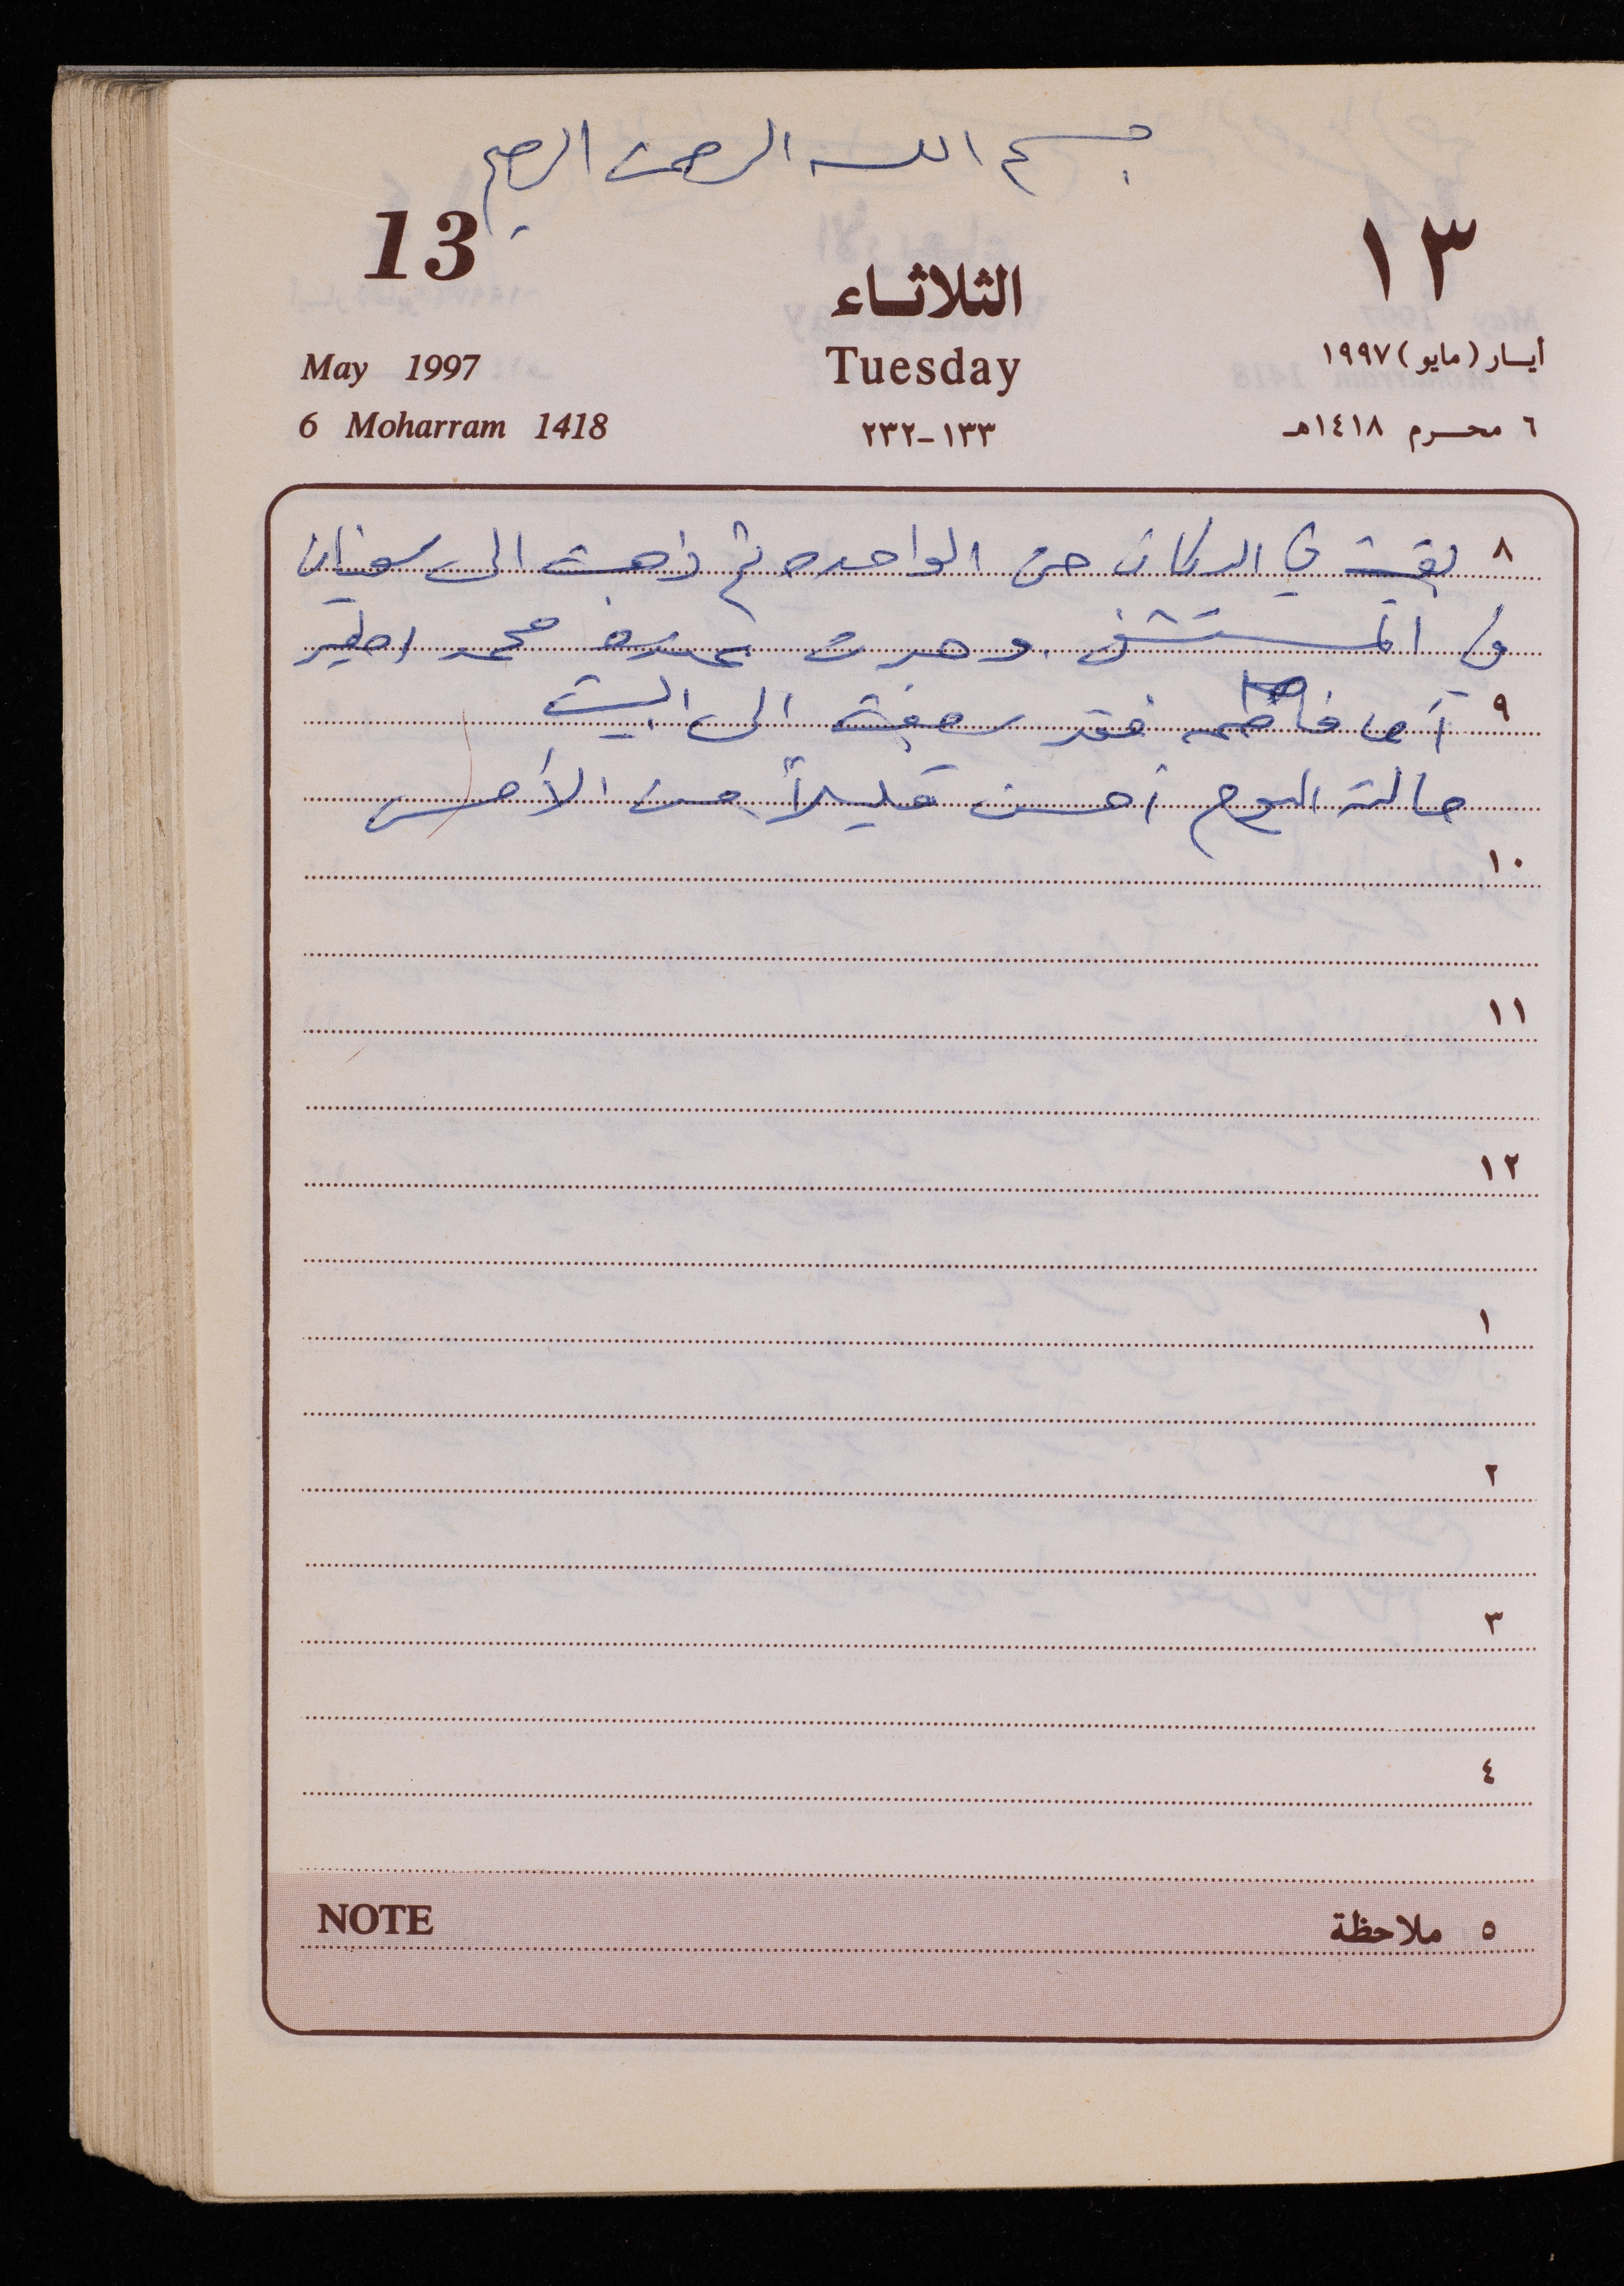 بسم الله الرحمن الرحيم
13
١٣
الثلاثاء
May 1997
Tuesday
أيار (مايو) ١٩٩٧
6 Moharram 1418
١٣٣-٢٣٢
٦ محرم ١٤١٨هـ
٨ بقيت في الدكان حتى الواحده ثم ذهبت الى سوزان
في المستشفى وحدي محمد
٩ أما فاطمه فقد سبقت الى البيت
حالته اليوم أحسن قليلاً من الأمس
١٠
١١
١٢
١
٢
٣
٤
NOTE
٥ ملاحظة